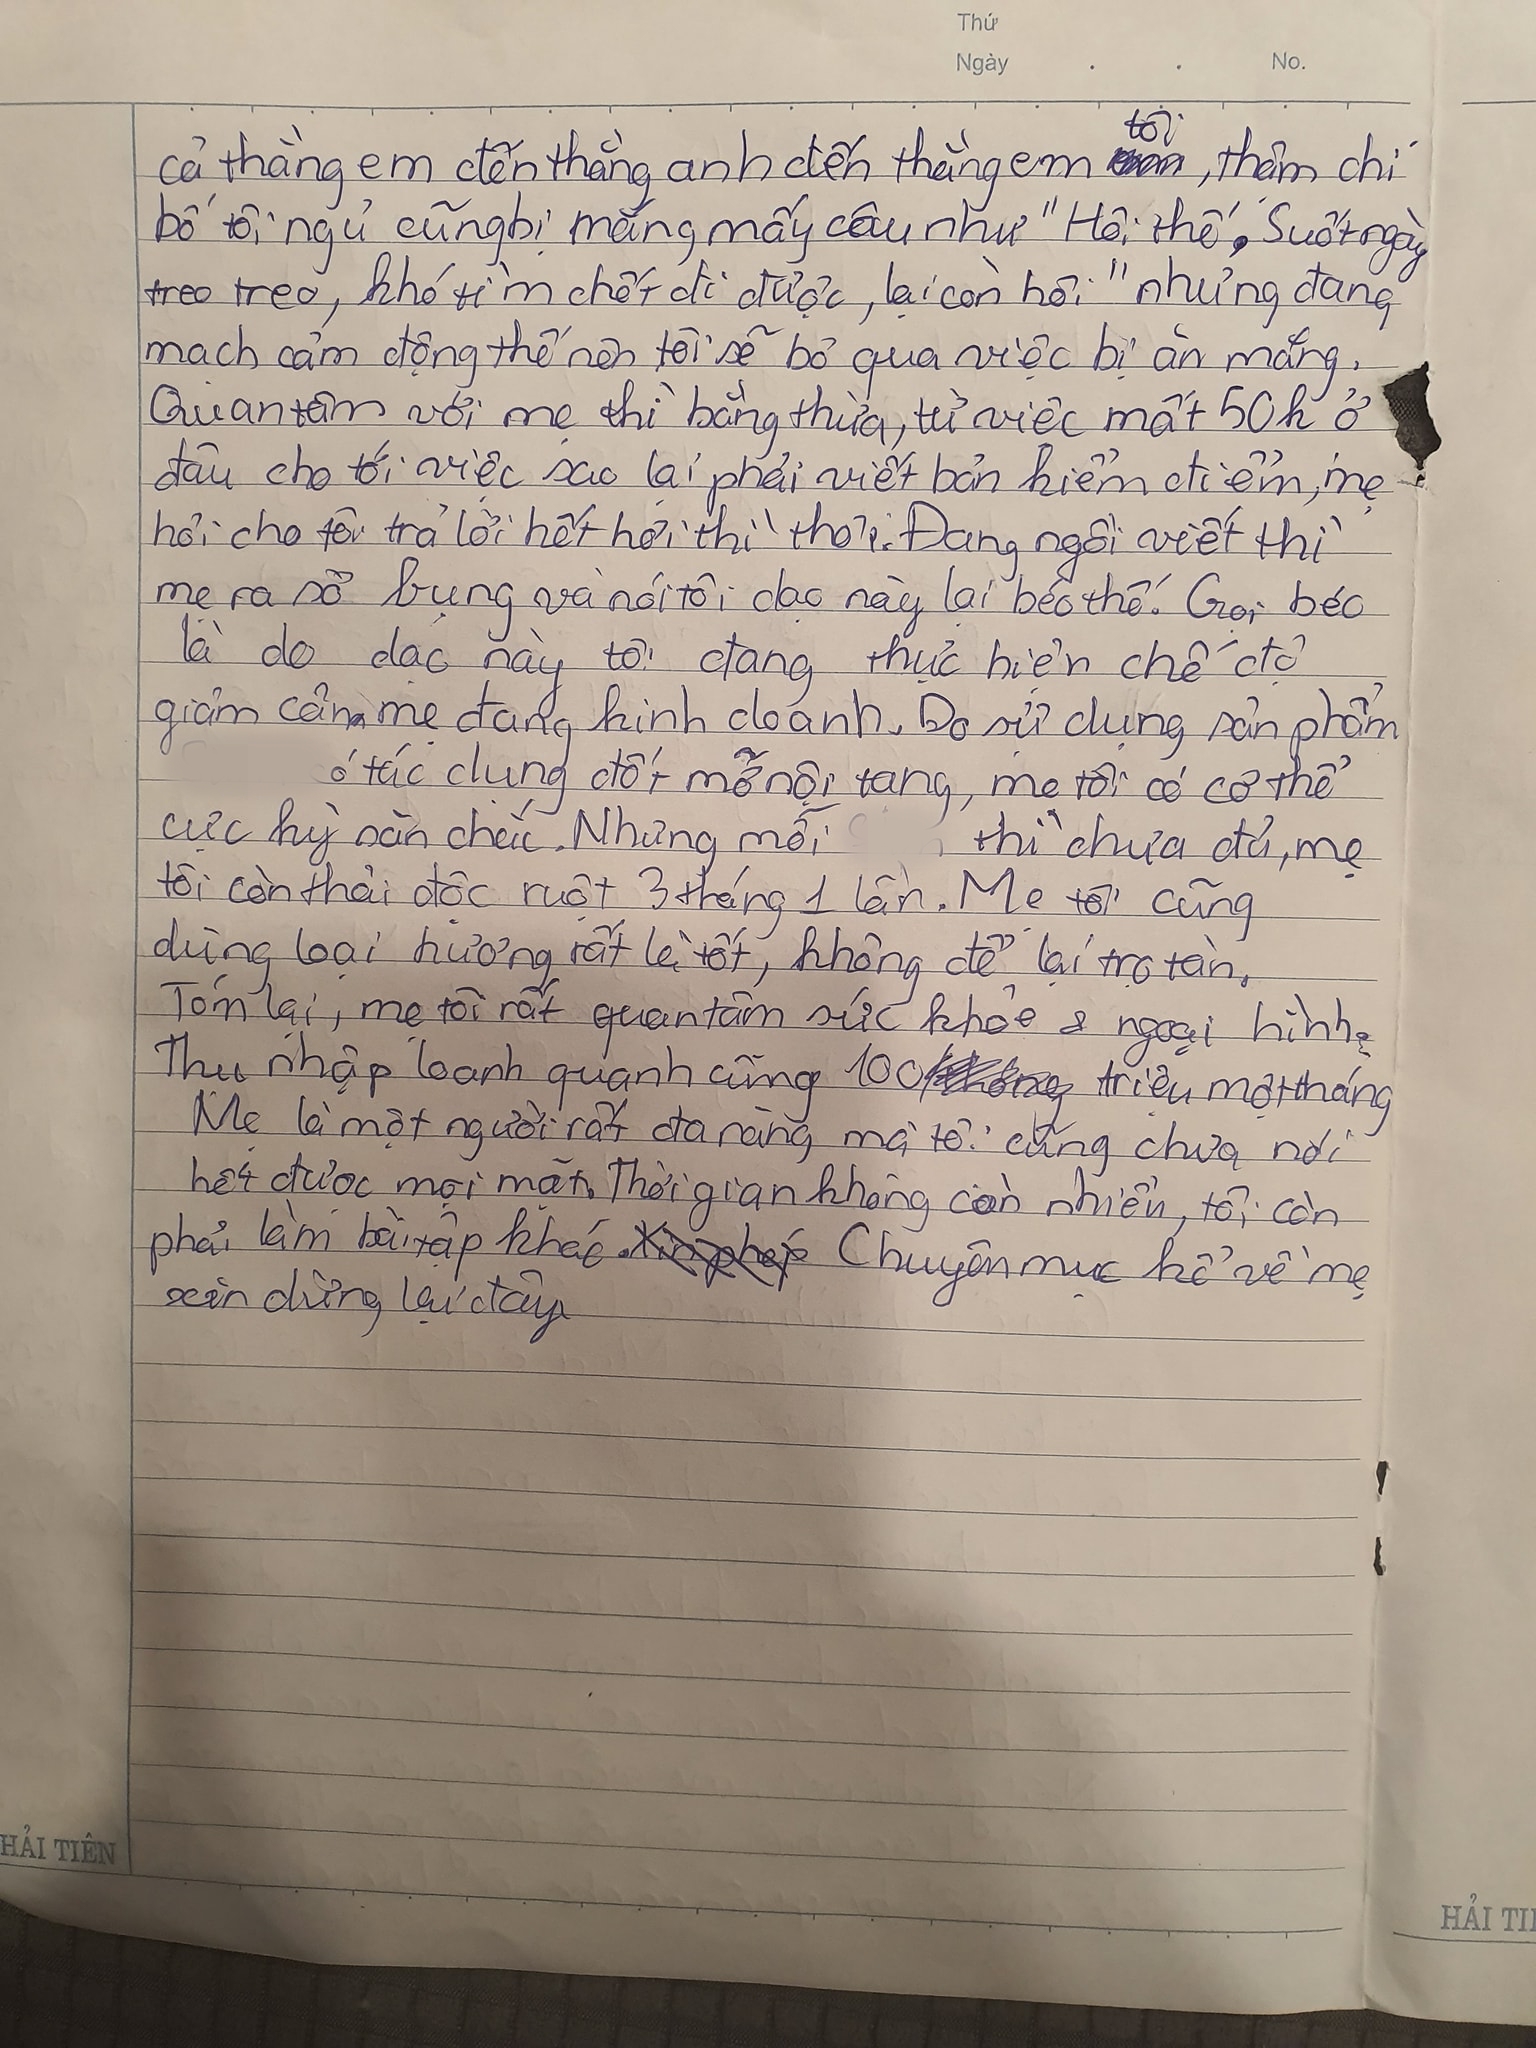 Thứ
Ngày . . No.
cả thằng em đến thằng anh đến thằng em tôi, thậm chí
bố tôi ngủ cũng bị mắng mấy câu như "Hôi thế, Suốt ngày
treo treo, khó tìm chết đi được, lại còn hôi" nhưng đang
mạch cảm động thế nên tôi sẽ bỏ qua việc bị ăn mắng.
Quan tâm với mẹ thì bằng thừa, từ việc mất 50k ở
đâu cho tới việc sao lại phải viết bản kiểm điểm, mẹ
hỏi cho tôi trả lời hết hơi thì thôi. Đang ngồi viết thì
mẹ ra sờ bụng và nói tôi dạo này lại béo thế. Gọi béo
là do dạo này tôi đang thực hiện chế độ
giảm cân mẹ đang kinh doanh. Do sử dụng sản phẩm
ó tác dụng đốt mỡ nội tạng, mẹ tôi có cơ thể
cực kỳ săn chắc. Nhưng mỗi thì chưa đủ, mẹ
tôi còn thải độc ruột 3 tháng 1 lần. Mẹ tôi cũng
dùng loại hương rất là tốt, không để lại trọ tàn.
Tóm lại, mẹ tôi rất quan tâm sức khỏe & ngoại hình.
Thu nhập loanh quanh cũng 100 triệu một tháng
Mẹ là một người rất đa năng mà tôi cũng chưa nói
hết được mọi mặt. Thời gian không còn nhiều, tôi còn
phải làm bài tập khác. Xin phép Chuyên mục kể về mẹ
xin dừng lại đây.
HẢI TIÊN
HẢI TI